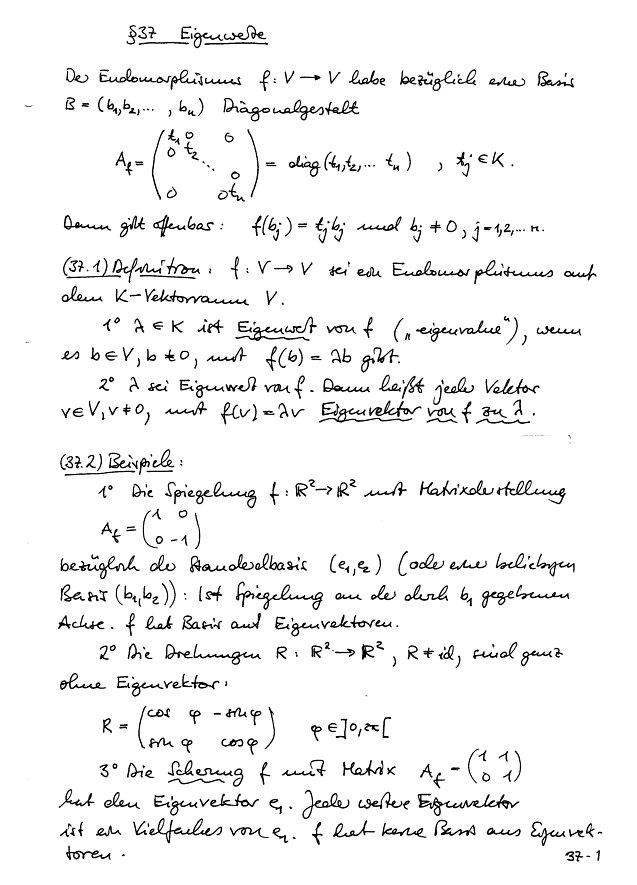 §37 Eigenwerte
Der Endomorphismus f: V → V habe bezüglich einer Basis
B = (b₁, b₂, ... , bₙ) Diagonalgestalt
A_f = (t₁ 0 0 / 0 t₂ ⋱ 0 / 0 0 tₙ) = diag (t₁, t₂, ... tₙ) , tⱼ ∈ K.
Dann gilt offenbar: f(bⱼ) = tⱼbⱼ und bⱼ ≠ 0, j = 1,2,... n.
(37.1) Definition: f: V → V sei ein Endomorphismus auf
dem K-Vektorraum V.
1° λ ∈ K ist Eigenwert von f („eigenvalue“), wenn
es b ∈ V, b ≠ 0, mit f(b) = λb gibt.
2° λ sei Eigenwert von f. Dann heißt jeder Vektor
v ∈ V, v ≠ 0, mit f(v) = λv Eigenvektor von f zu λ.
(37.2) Beispiele:
1° Die Spiegelung f: ℝ² → ℝ² mit Matrixdarstellung
A_f = (1 0 / 0 -1)
bezüglich der Standardbasis (e₁, e₂) (oder einer beliebigen
Basis (b₁, b₂)): Ist Spiegelung an der durch b₁ gegebenen
Achse. f hat Basis aus Eigenvektoren.
2° Die Drehungen R: ℝ² → ℝ², R ≠ id, sind ganz
ohne Eigenvektor:
R = (cos φ -sin φ / sin φ cos φ) φ ∈ ]0, 2π[
3° Die Scherung f mit Matrix A_f = (1 1 / 0 1)
hat den Eigenvektor e₁. Jeder weitere Eigenvektor
ist ein Vielfaches von e₁. f hat keine Basis aus Eigenvek-
toren.
37-1